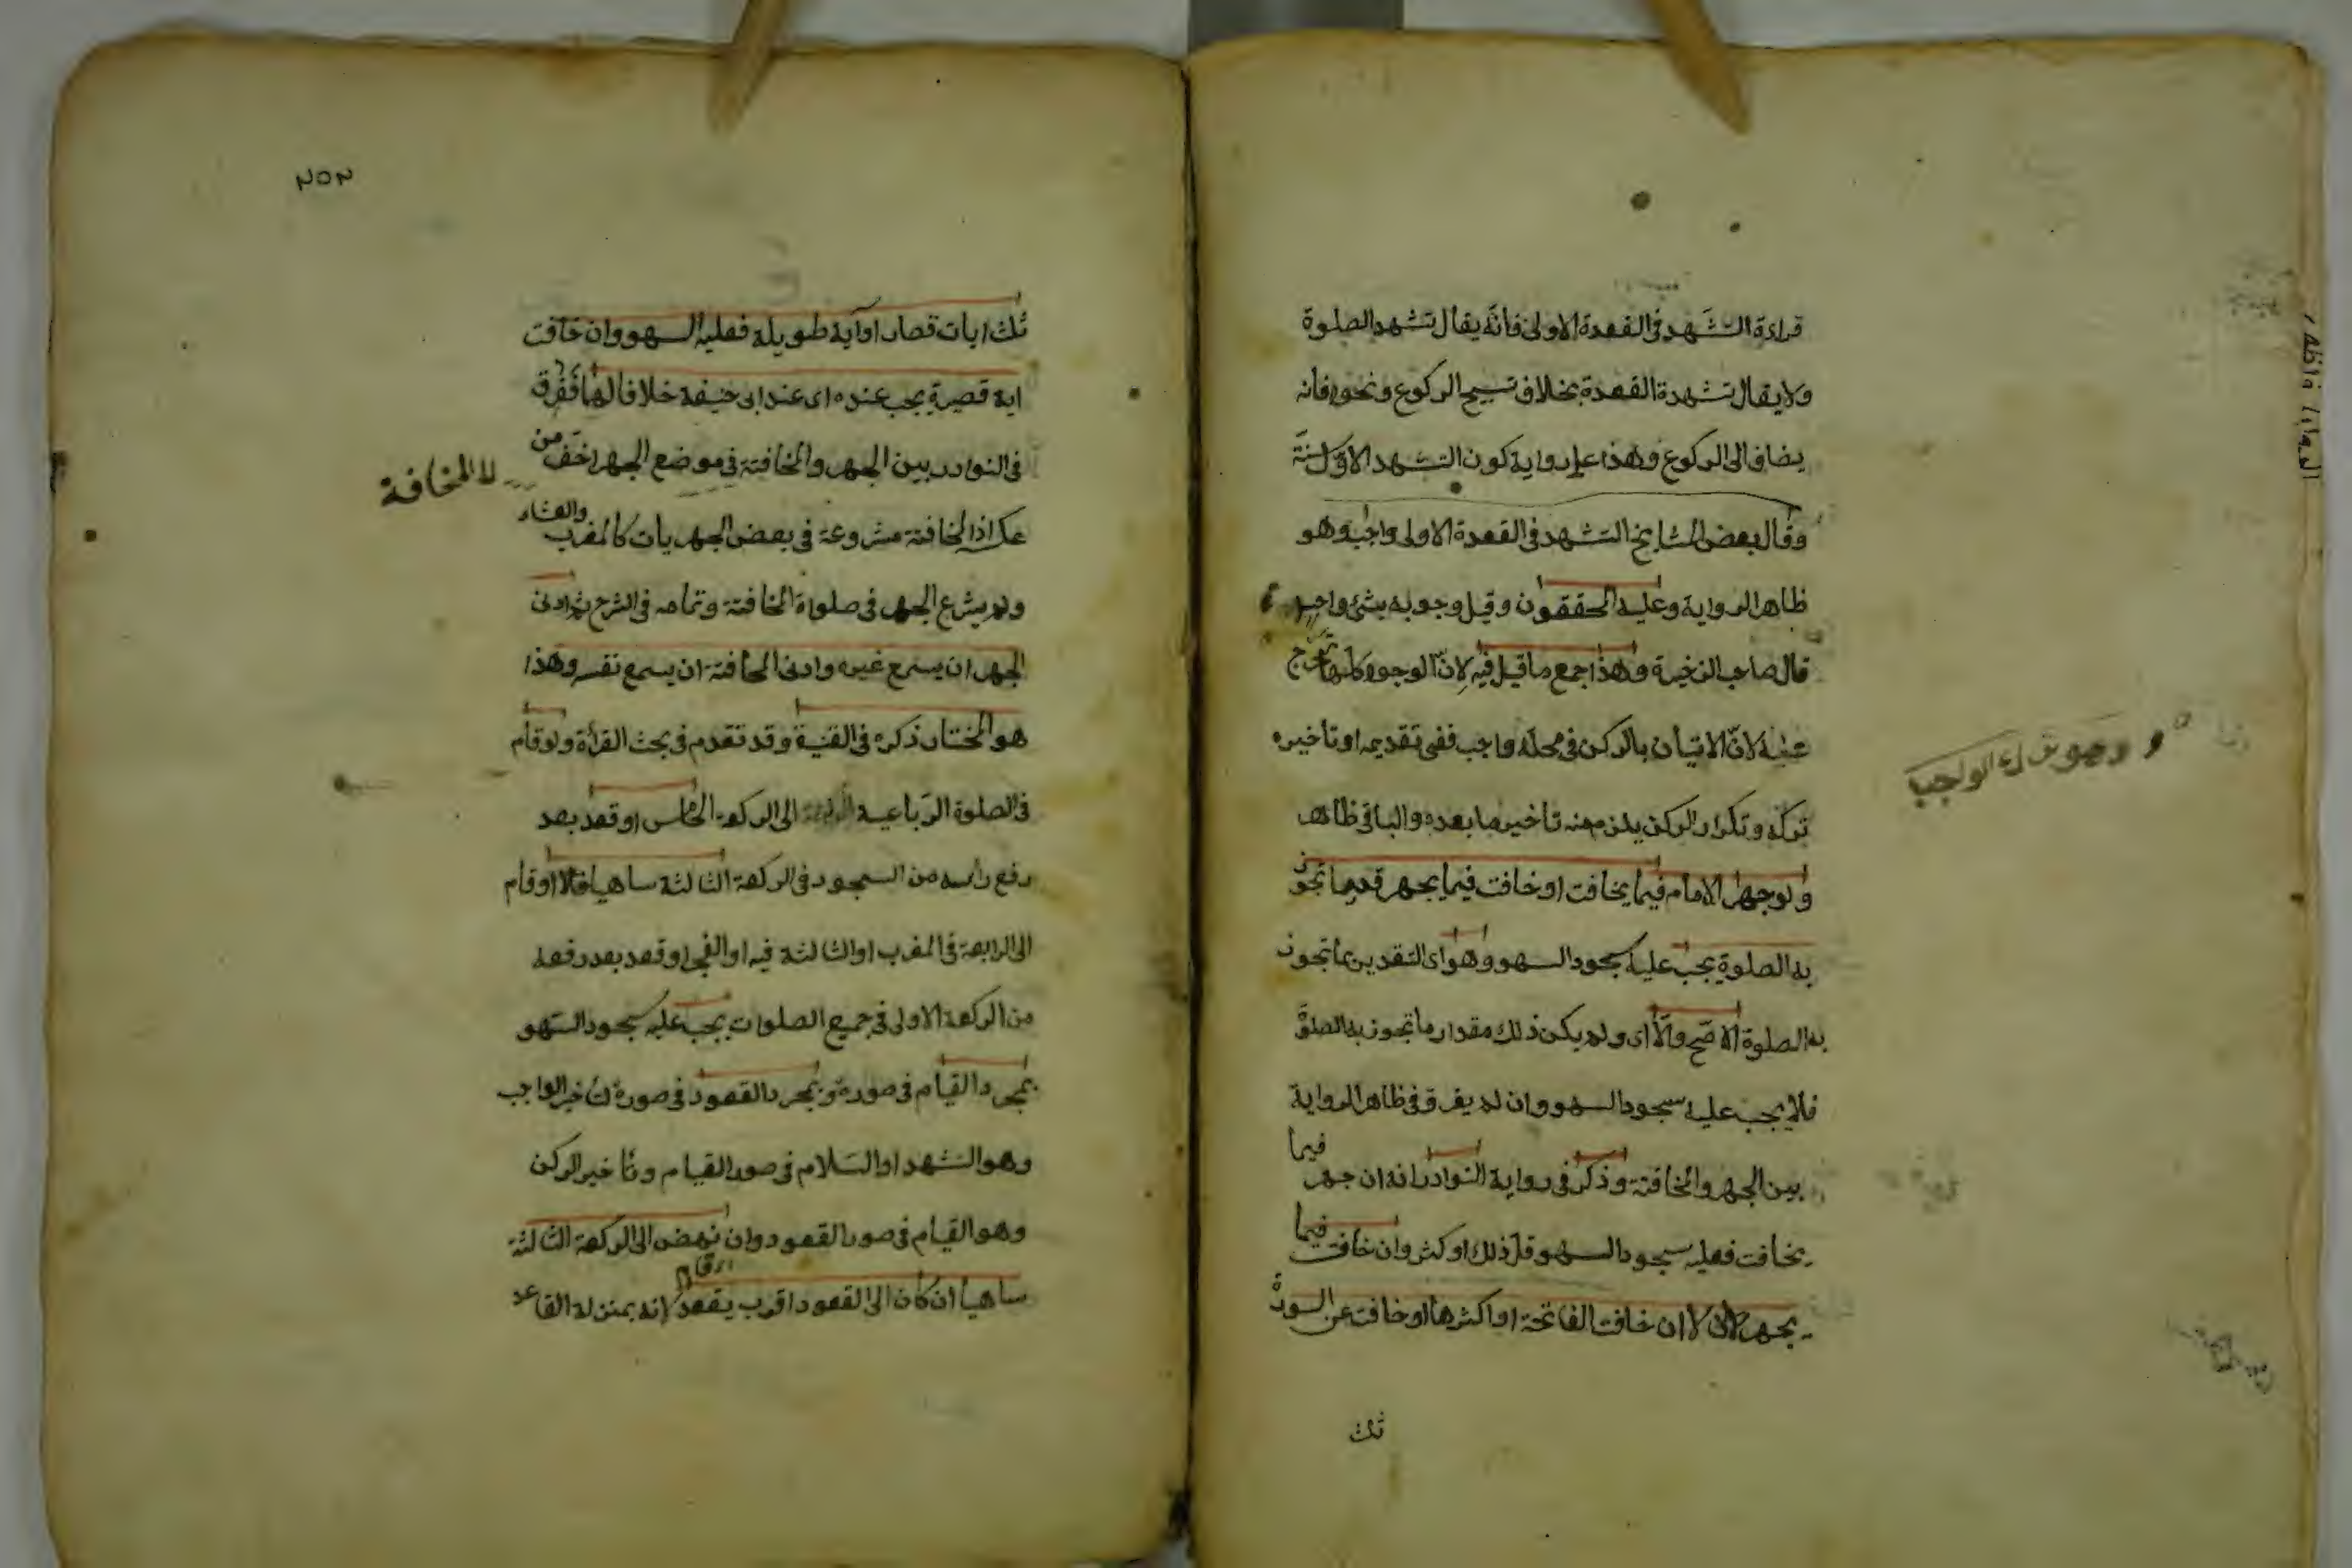 قراءة التشهد في القعدة الاولى فانه يقال تشهد الصلوة
ولا يقال تشهدة القعدة بخلاف تسبيح الركوع ونحوه فانه
يضاف الى الركوع وهذا على رواية كون التشهد الاول سنة
وقال بعض المشايخ التشهد في القعدة الاولى واجب وهو
ظاهر الرواية وعليه المحققون وقيل وجوبه بشئ واحد
قال صاحب الذخيرة وهذا اجمع ما قيل فيه لان الوجوه كلها تخرج
عليه لان الاتيان بالركن في محله واجب ففى تقديمه او تاخيره
تركه وتكرار الركن يلزم منه تاخير ما بعده والباقى ظاهر
ولو جهر الامام فيما يخافت او خافت فيما يجهر قدر ما تجوز
به الصلوة يجب عليه سجود السهو وهو اى التقدير بما تجوز
به الصلوة الاصح والا اى ولم يكن ذلك مقدار ما تجوز به الصلوة
فلا يجب عليه سجود السهو وان لم يفرق في ظاهر الرواية
بين الجهر والمخافتة وذكر في رواية النوادر انه ان جهر فيما
يخافت فعليه سجود السهو قل ذلك او كثر وان خافت فيما
يجهر لا ان خافت الفاتحة او اكثرها او خافت عن السورة
ثلث
وهو ترك الواجب
٢٥٢
ثلث ايات قصار او آية طويلة فعليه السهو وان خافت
اية قصيرة يجب عنده اى عند ابى حنيفة خلافا لهما ففرق
في النوادر بين الجهر والمخافتة في موضع الجهر اخف من
عكسه اذ المخافتة مشروعة في بعض الجهريات كالمغرب والعشاء
ولم يشرع الجهر في صلواة المخافتة وتمامه في الشرح ثم ادنى
الجهر ان يسمع غيره وادنى المخافتة ان يسمع نفسه وهذا
هو المختار ذكره في القنية وقد تقدم في بحث القرأة ولو قام
في الصلوة الرباعية الى الركعة الخامس او قعد بعد
رفع رأسه من السجود في الركعة الثالثة ساهيا او قام
الى الرابعة في المغرب او الثالثة فيه او الفجر او قعد بعد رفعه
من الركعة الاولى في جميع الصلوات يجب عليه سجود السهو
بمجرد القيام في صورة وبمجرد القعود في صورة لتأخير الواجب
وهو التشهد او السلام في صور القيام وتأخير الركن
وهو القيام في صور القعود وان نهض الى الركعة الثالثة
ساهيا ان كان الى القعود اقرب يقعد لانه بمنزلة القاعد
المخافة